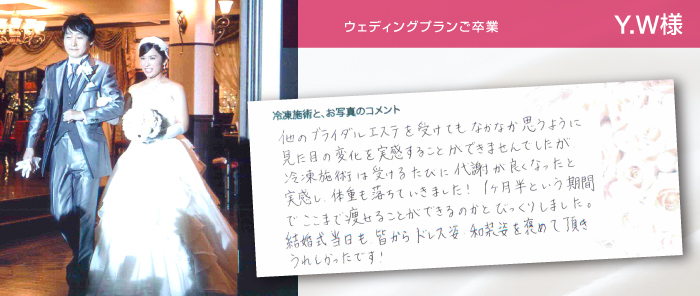 ウェディングプランご卒業
Y.W様
冷凍施術と、お写真のコメント
他のブライダルエステを受けてもなかなか思うように
見た目の変化を実感することができませんでしたが
冷凍施術は受けるたびに代謝が良くなったと
実感し、体重も落ちていきました！1ヶ月半という期間
でここまで痩せることができるのかとびっくりしました。
結婚式当日も皆からドレス姿、和装姿を褒めて頂き
うれしかったです！